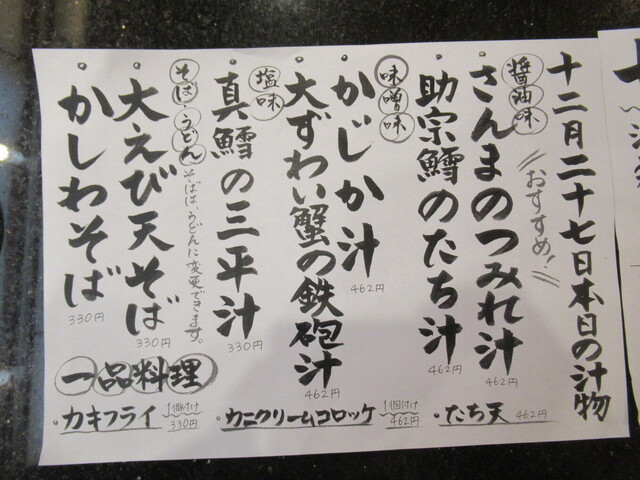 十二月二十七日本日の汁物
おすすめ!
醤油味
さんまのつみれ汁
462円
助宗鱈のたち汁
462円
味噌味
かじか汁
462円
大ずわい蟹の鉄砲汁
462円
塩味
真鱈の三平汁
330円
そば・うどん
そばは、うどんに変更できます。
大えび天そば
330円
かしわそば
330円
一品料理
・カキフライ 1個付け 330円
・カニクリームコロッケ 1個付け 462円
・たち天 462円